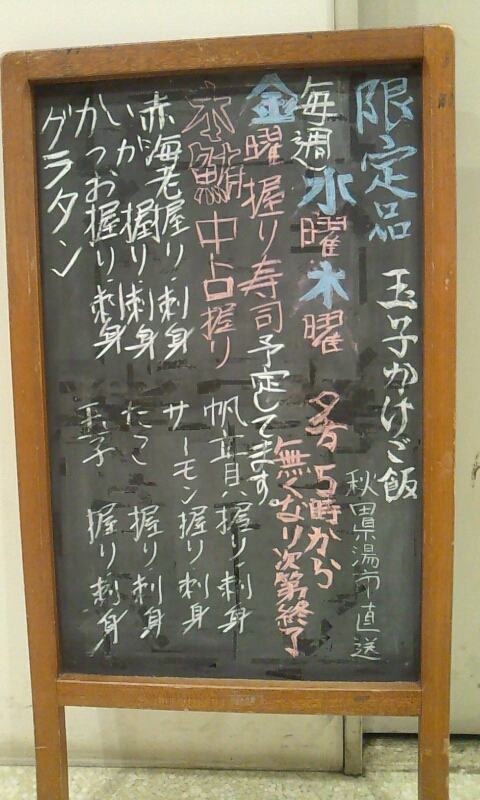 限定品 玉子かけご飯
秋田県湯市直送
毎週水曜木曜 夕方5時から
無くなり次第終了
金曜握り寿司予定してます。
本鮪中占握り 帆立貝握り刺身
赤海老握り刺身 サーモン握り刺身
いか握り刺身 たこ握り刺身
かつお握り刺身 玉子握り刺身
グラタン